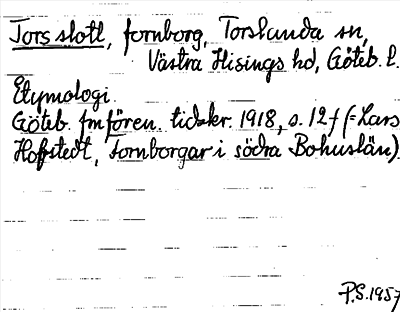 Tors slott, fornborg, Torslanda sn,
Västra Hisings hd, Göteb. l.
Etymologi.
Göteb. fmfören. tidskr. 1918, s. 12 f (= Lars
Hofstedt, Fornborgar i södra Bohuslän).
P.S. 1957